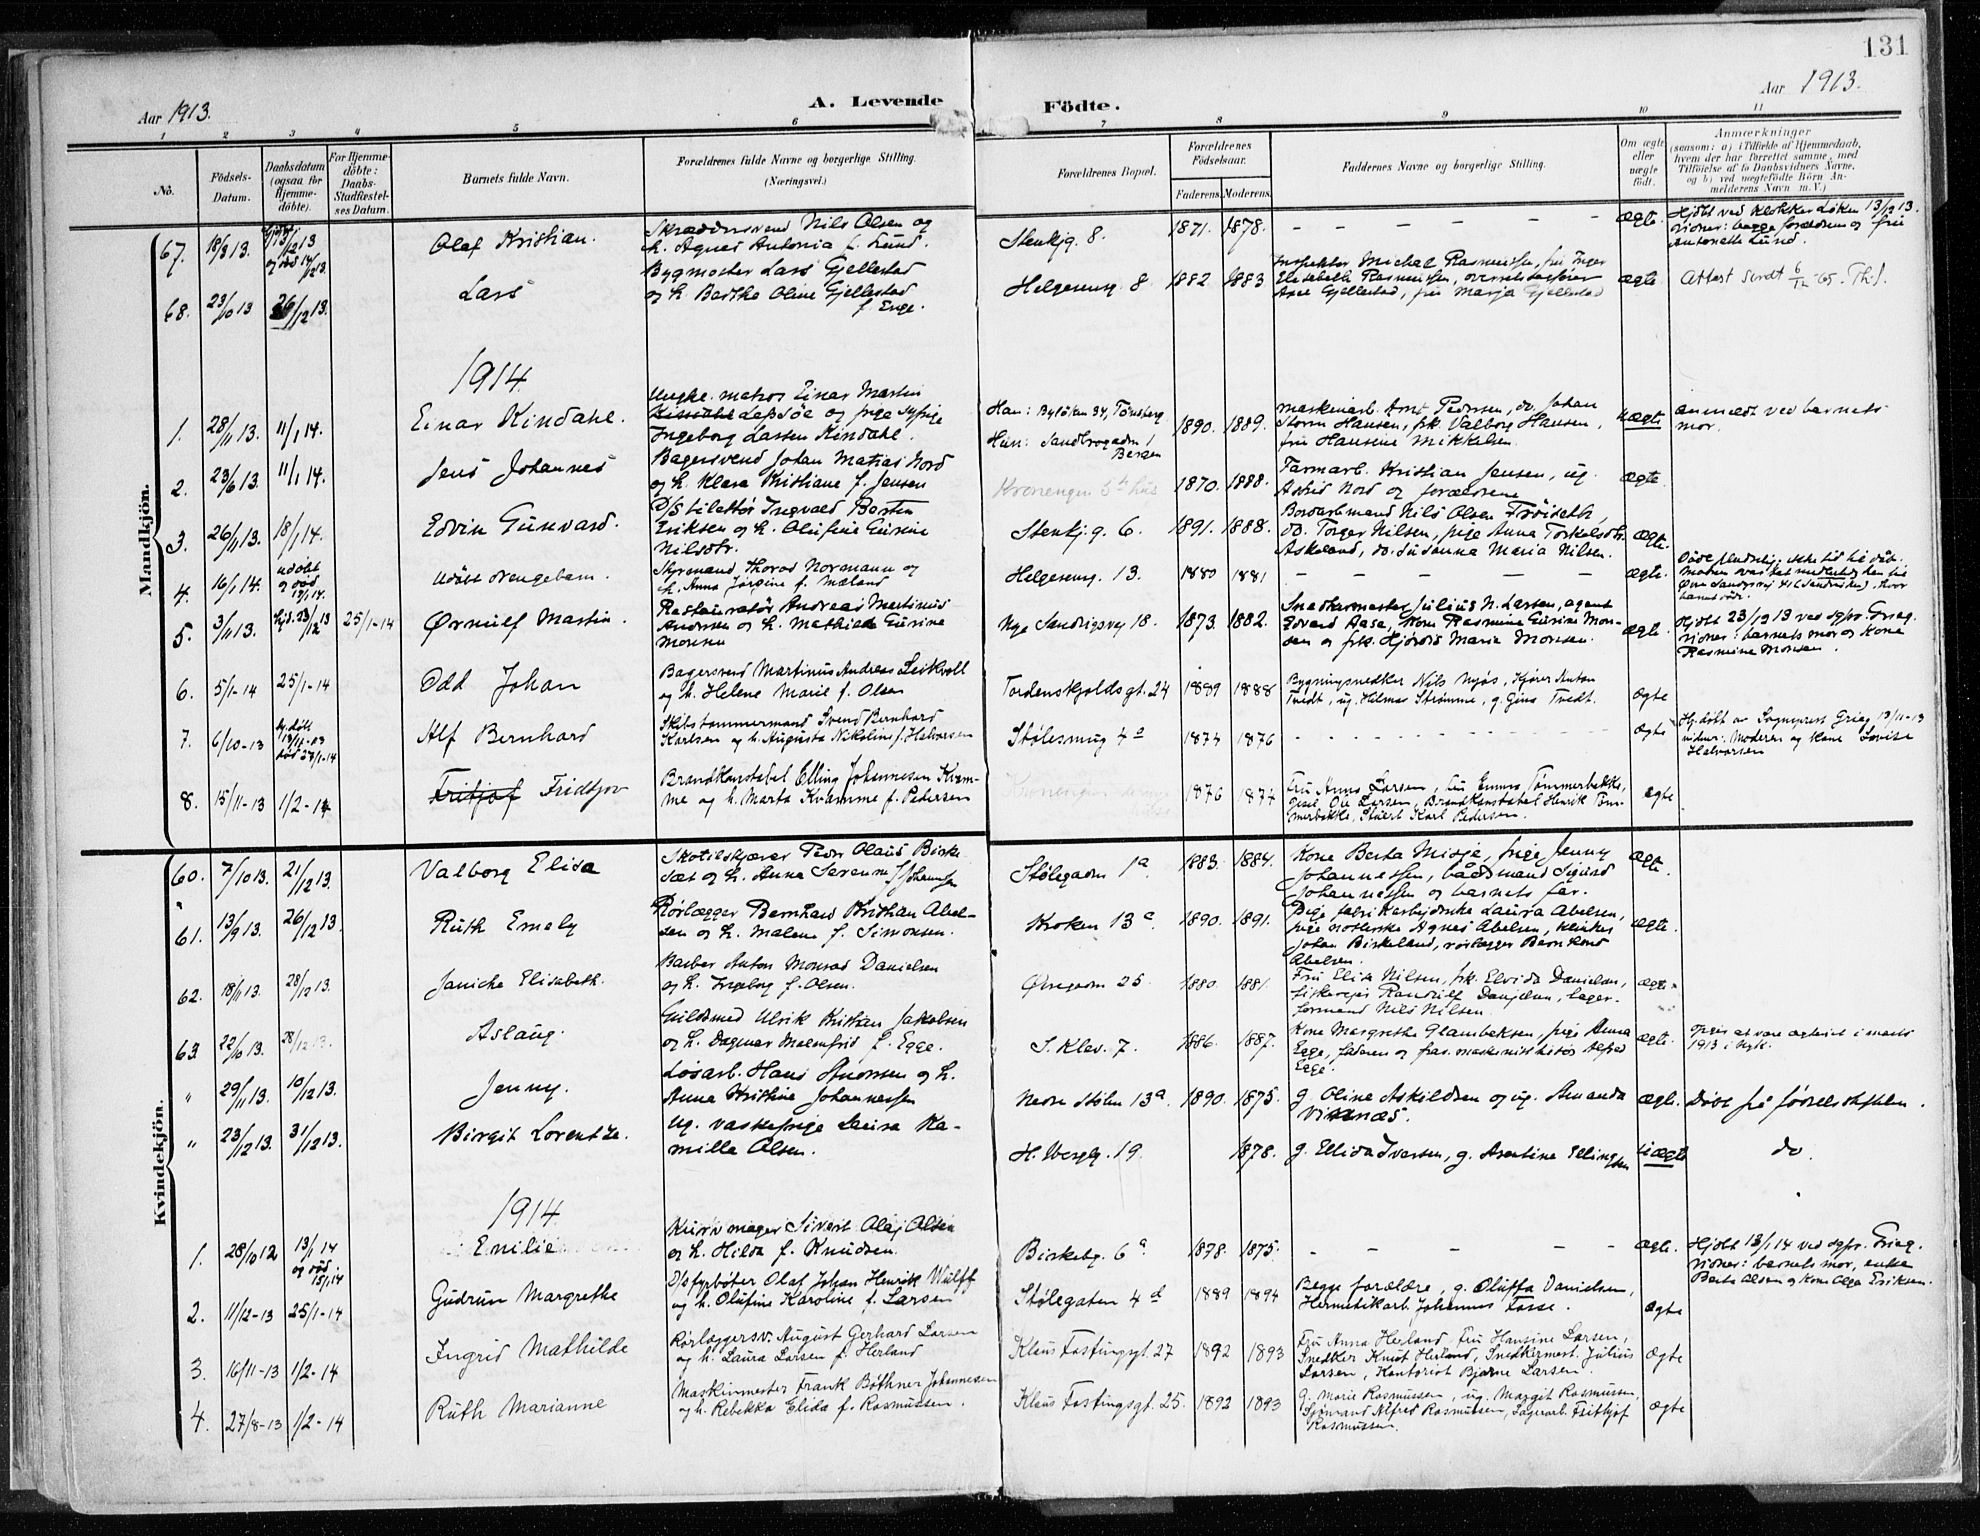 131
Aar 1913.
A. Levende
Födte.
Aar 1913.
1 2 3 4 5 6 7 8 9 10 11
No.
Födsels-
Datum.
Daabsdatum
(ogsaa for
Hjemme-
döbte).
For Hjemme-
döbte:
Daabs-
Stadfæstel-
ses Datum.
Barnets fulde Navn.
Forældrenes fulde Navne og borgerlige Stilling.
(Næringsvei.)
Forældrenes Bopæl.
Forældrenes
Födselsaar.
Faderens. Moderens.
Faddernes Navne og borgerlige Stilling.
Om ægte
eller
uægte
födt.
Anmærkninger
(saasom: a) i Tilfælde af Hjemmedaab,
hvem der har forrettet samme, med
Tilföielse af to Daabsvidners Navne,
og b) ved uægtefödte Börn An-
melderens Navn m. V.)
Mandkjön.
67. 18/3 13. og död 14/12 13. Olaf Kristian. Skræddersvend Nils Olsen og
h. Agnes Antonia f. Lund. Stenkjg. 8. 1871. 1878. – – – – – – ægte. Hjdöbt ved klokker Løken 13/12 13.
Vidner: begge forældrene og fru
Antonette Lund.
68. 23/10 13 26/12 13. Lars Bygmester Lars Gjellestad
og h. Berthe Oline Gjellestad
f. Enge. Helgesensg. 8 1882 1883 Inspektør Michal Rasmussen, fru Inger
Elisabeth Rasmussen, overretssagfører
Gjellestad, fru Marja Gjellestad ægte. Attest sendt 6/12-65. Th.J.
1914.
1. 28/11 13. 11/1 14. Einar Kindahl. Ungk. matros Einar Martin
Kindahl Lepsöe og pige syrsige
Ingeborg Lassen Kindahl. Han: Byløken 34, Tønsberg
Hun: Sandbrogaden 1
Bergen 1890. 1889. Maskinarb. Arnt Pedersen, do. Johan
Storm Hansen, frk. Valborg Hansen,
fru Hansine Mikkelsen. uægte anmeldt ved barnets
mor.
2. 23/6 13. 11/1 14. Jens Johannes Bagersvend Johan Matias Nord
og h. Klara Kristiane f. Jensen Kronengen 5te hus 1870. 1888. Tarmarb. Kristian Jensen, ug.
Astrid Nord og forældrene ægte
3. 26/11 13. 18/1 14. Edvin Gunvard. D/S lilettør Ingvald Bertin
Eriksen og h. Olufine Gurine
Nilsdtr. Stenkj. g. 6. 1891. 1888. Nils Olsen Fröiseth,
do. Torger Nilsen, pige Anna Torkelsdtr.
Askeland, do. Susanna Maria Nilsen. ægte.
4. 16/1 14. udöbt og död 17/1 14. Udöbt drengebarn. Styrmand Thorod Normann og
h. Anna Jörgine f. Mæland Helgesensg. 13. 1880 1881 – – – – – – ægte. Döde pludselig, ikke tid til dåb.
5. 3/11 13. hjd. 23/12 13 25/1-14 Ørnulf Martin. Restauratør Andreas Martinus
Andersen og h. Mathilde Gurine
Monsen Nye Sandvigsvej 18. 1873. 1882. Snedkermester Julius N. Larsen, agent
Edvard Aase, kone Rasmine Gurine Mon-
sen og frk. Hjördis Marie Monsen. ægte. Hjdöbt 23/12 13 ved sgpr. Grieg.
Vidner: barnets mor og kone
Rasmine Monsen.
6. 5/1-14 25/1-14 Odd Johan Bagersvend Martinus Andreas Leikvoll
og h. Helene Marie f. Olsen Tordenskjoldsgt. 24 1889 1888 Bygningssnedker Nils Njøs, Kjører Anton
Tvedt, ug. Helmer Strømme, g. Gina Tvedt. ægte
7. 6/10-13 hj.döbt 13/11-13 död 27/1-14 Alf Bernhard Skibstømmermand Svend Bernhard
Karlsen og h. Augusta Nikoline f. Halvorsen Stølesmug 4a 1874 1876 - - - - - - ægte Hj.döbt av Sogneprest Grieg 13/11-13
vidner: Moderen og kone Lovise
Halvorsen
8. 15/11-13 1/2-14 Fritjof Fridtjov Brandkonstabel Elling Johannesen Kvam-
me og h. Marta Kvamme f. Pedersen Kronengen 1876 1874 Fru Anna Larsen, fru Emma Tømmerbakke,
gsel. Ole Larsen, Brandkonstabel Henrik Tøm-
merbakke, Stuert Karl Pedersen. ægte
Kvindekjön.
60. 7/10 13. 21/12 13. Valborg Elisa Skotilskjærer Peder Olaus Birke-
sæt og h. Anna Severine f. Johannesen Stølegaden 1a 1883. 1884. Kone Berta Misje, pige Jenny
Johannessen, baadsmand Sigurd
Johannessen og barnets far. ægte.
61. 13/9 13. 26/12 13. Ruth Emely Rörlægger Bernhard Kristian Abel-
sen og h. Malene f. Simonsen. Kroken 13c. 1890. 1891. Pige fabrikarbejderske Laura Abelsen,
pige Agnes Abelsen,
Johan Birkeland, rørlægger Bernhard
Abelsen. ægte.
62. 18/11 13. 28/12 13. Janicke Elisabeth. Barber Anton Monrad Danielsen
og h. Ingeborg f. Olsen. Øvregaden 25 1880. 1881. Fru Elisa Nilsen, frk. Elvida Danielsen,
Randulf Danielsen, lager-
formand Nils Nilsen. ægte
63 22/6 13. 28/12 13. Aslaug. Guldsmed Ulrik Kristian Jakobsen
og h. Dagmar Malenfrid f. Egge. S. Klev. 7. 1886. 1887. Kone Margrethe Glambeksen, pige Anna
Egge, faderen og frav. maskinist Alfred
Egge. ægte. opgis at være ægteviet i marts
1913 i
" 29/11 13. 10/12 13. Jenny. Løsarb. Hans Andersen og h.
Anna Kristine Johannessen Nedre Stølen 13a. 1890. 1875. g. Oline Askildsen og ug. Amanda
Vi​knæs. ægte. Døde på fødselsstiftelsen.
" 23/12 13. 31/12 13. Birgit Lorentze. Ug. vaskepige Laura Ka-
milla Olsen. H. Wergelg. 19. 1878. g. Ellida Iversen, g. Asentine Ellingsen uægte do.
1914.
1. 28/10 12 13/1 14 og död 15/1 14 Emilie Kurvmager Sivert Olaj Olsen
og h. Hilda f. Knudsen. Birkebg. 6a. 1878. 1875. – – – – – ægte. Hjdöbt 13/1 14 ved sgpr. Grieg.
Vidner: barnets mor, enke
Berta Olsen og kone Olga Eriksen.
2. 11/12-13 25/1-14 Gudrun Margrethe D/S fyrbøter Olaf Johan Henrik Wulff
og h. Olufine Karoline f. Larsen Stølegaten 4d 1889 1894 Begge forældre, g. Oluffa Danielsen,
Hermetikarb. Johannes Fosse. ægte
3. 16/11-13 1/2-14 Ingrid Mathilde Rørlæggersv. August Gerhard Larsen
og h. Laura Larsen f. Herland Klaus Fastingsgt. 27 1892 1893 Fru Anna Herland, Fru Hansine Larsen,
Snedker Knut Herland, Snedkermest. Julius
Larsen, Kontorist Bjarne Larsen. ægte
4. 27/8-13 1/2-14 Ruth Marianne Maskinmester Frank Bøthner Johannesen
og h. Rebekka Elida f. Rasmussen. Klaus Fastingsgt. 25. 1892 1893 g. Marie Rasmussen, ug. Margit Rasmussen,
Sjømand Alfred Rasmussen, Lagerarb. Fritjof
Rasmussen. ægte